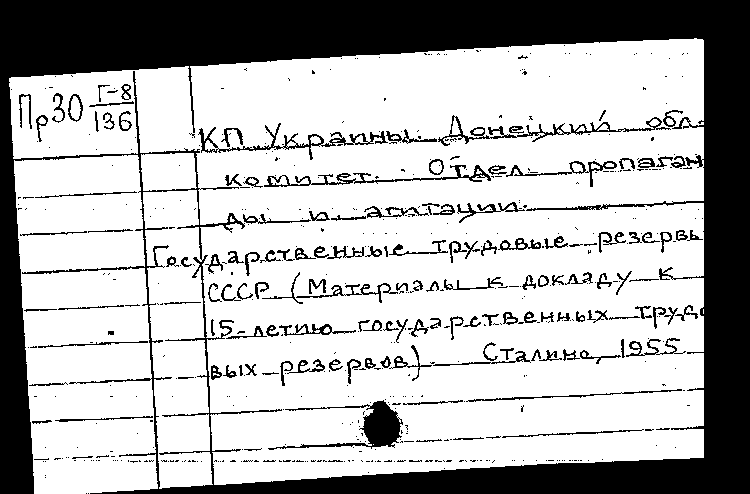 Пр30 Г-8
136
КП Украины. Донецкий обл.
комитет. Отдел пропаган
ды и агитации.
Государственные трудовые резервы
СССР. (Материалы к докладу к
15-летию государственных трудо
вых резервов). Сталино, 1955